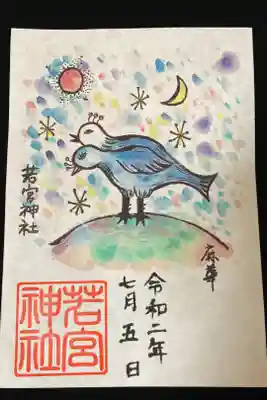 若宮神社
麻華
令和二年
七月五日
若宮
神社